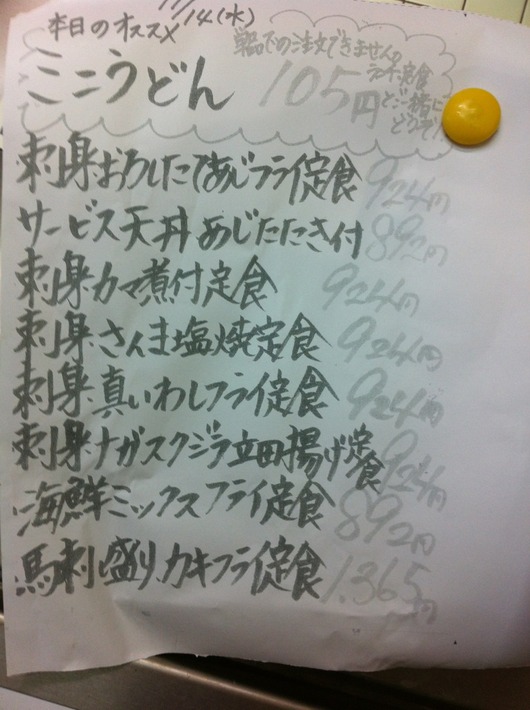 11/14(水)
本日のオススメ
単品での注文できません。
ランチ、定食
とご一緒に
どうぞ!
ミニうどん 105円
刺身おろしたてあじフライ定食 924円
サービス天丼 あじたたき付 892円
刺身カマ煮付定食 924円
刺身さんま塩焼定食 924円
刺身真いわしフライ定食 924円
刺身ナガスクジラ立田揚げ定食 924円
海鮮ミックスフライ定食 892円
馬刺し盛りカキフライ定食 1,365円